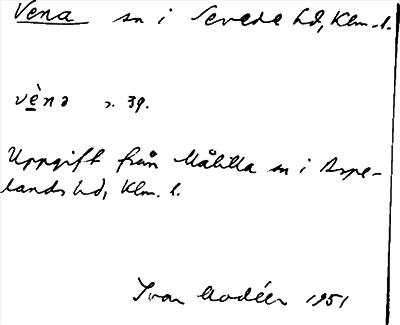 Vena sn i Sevede hd, Klm. l.
vè̱nə s. 39.
Uppgift från Målilla sn i Aspe-
lands hd, Klm. l.
Ivar Modéer 1951